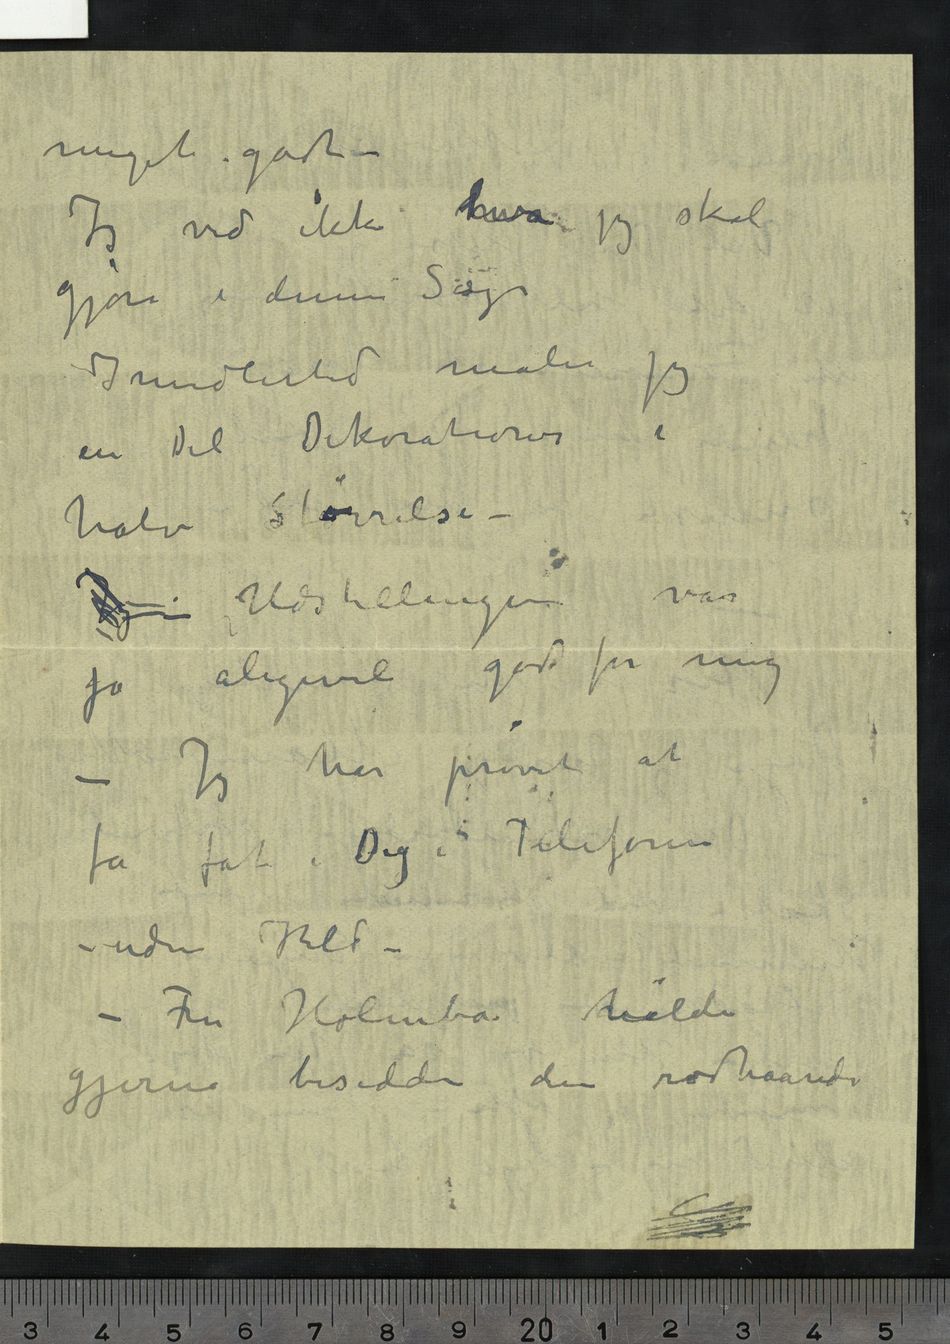 meget godt –
Jeg ved ikke hva jeg skal
gjøre i denne Sag
Imidlertid maler jeg
en Del Dekorationer i
halv Størrelse –
Udstillingen var
jo aligevel god for mig
– Jeg har prøvet at
få fat i Dig i Telefonen
– uden Held –
– Fru Holmboe
gjerne besidde den rødhaarede
3 4 5 6 7 8 9 20 1 2 3 4 5